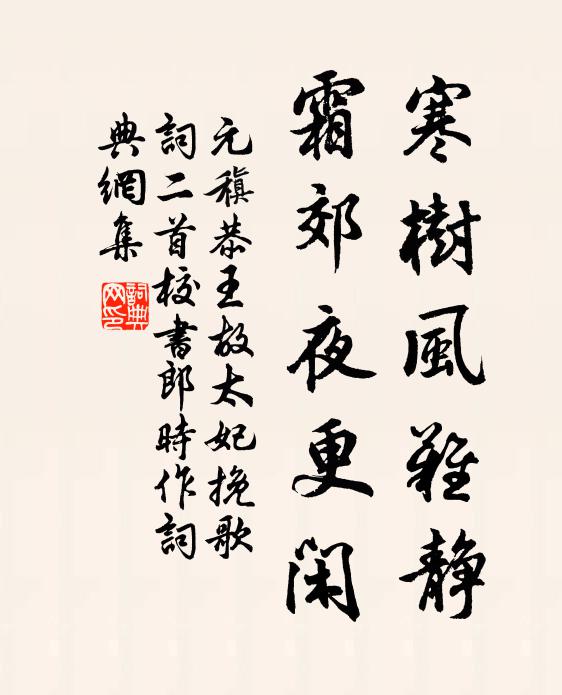 寒樹風難静
霜郊夜更闲
元稹恭王故太妃挽歌
詞二首校書郎時作詞
典網集
詞典網印